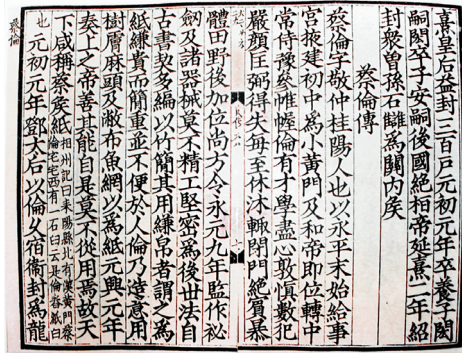 熹皇后益封三百戶元初元年卒養子閎
嗣閎卒子安嗣後國絕桓帝延熹二年紹
封衆曾孫石讎爲關內矦
蔡倫傳
蔡倫字敬仲桂陽人也以永平末始給事
宮掖建初中爲小黃門及和帝即位轉中
常侍豫參帷幄倫有才學盡心敦慎數犯
嚴顏匡弼得失每至休沐輒閉門絕賓暴
體田野後加位尚方令永元九年監作祕
劍及諸器械莫不精工堅密爲後世法自
古書契多編以竹簡其用縑帛者謂之爲
紙縑貴而簡重並不便於人倫乃造意用
樹膚麻頭及敝布魚網以爲紙元興元年
奏上之帝善其能自是莫不從用焉故天
下咸稱蔡矦紙相州記曰耒陽縣北有漢黃門蔡倫宅宅西有一石臼云是倫舂紙臼
也元初元年鄧太后以倫久宿衞封爲龍
蔡倫